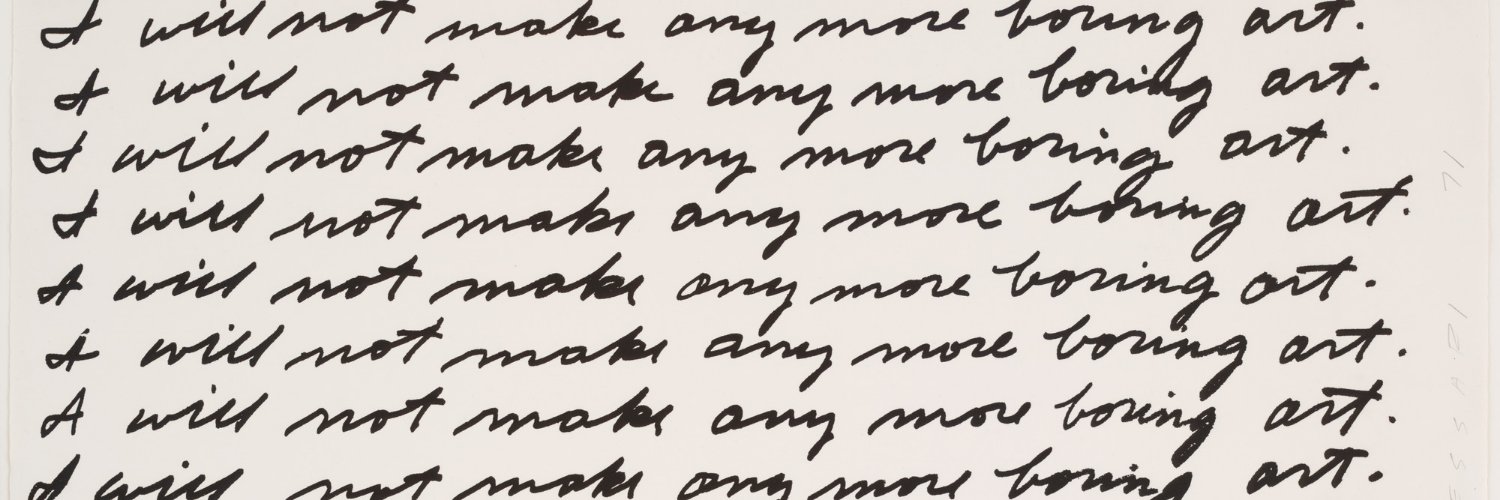 I will not make any more boring art.
I will not make any more boring art.
I will not make any more boring art.
I will not make any more boring art.
I will not make any more boring art.
I will not make any more boring art.
I will not make any more boring art.
I will not make any more boring art.
71